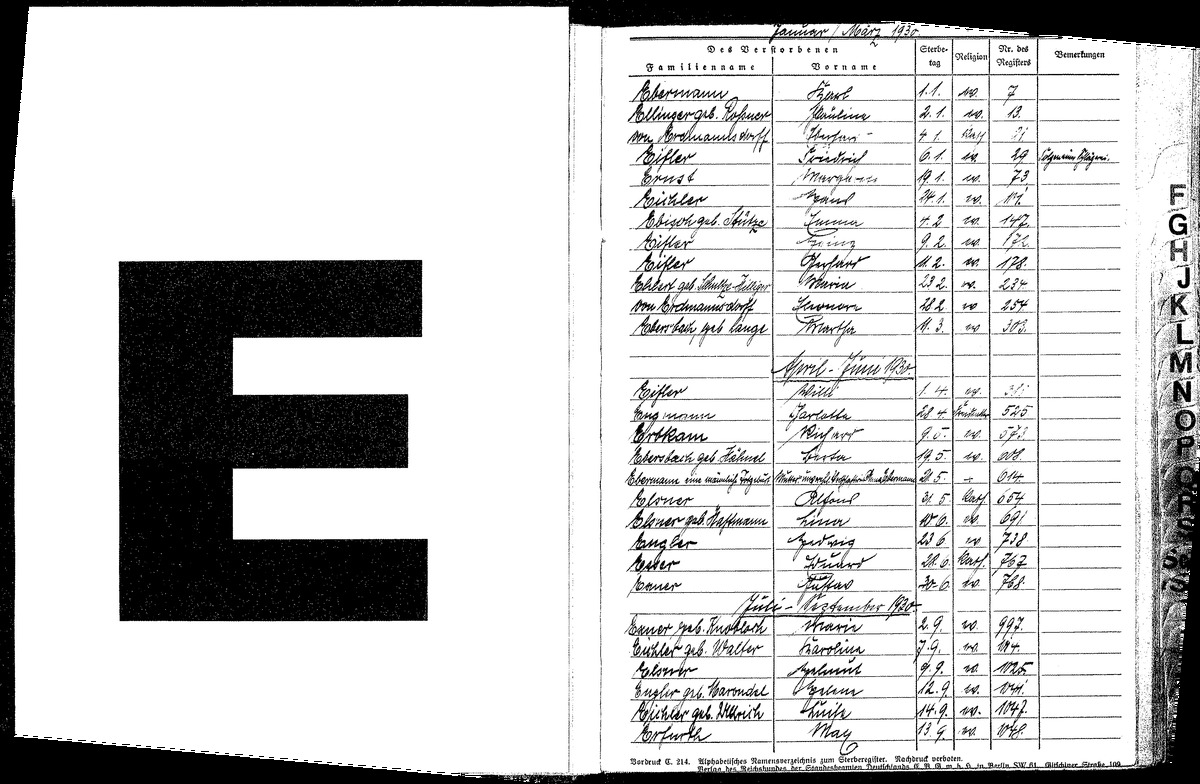 E
Januar / März 1930.
Des Verstorbenen Sterbetag Religion Nr. des Registers Bemerkungen
Familienname Vorname
Ebermann Karl 1.1. ev. 7
Ellinger geb. Roßner Pauline 2.1. ev. 13.
von Erdmannsdorff 4.1. Kath
Eifler Friedrich 6.1. ev. 29
Ernst 19.1. ev. 73
Eichler Hans 24.1. ev.
Ebisch geb. Stütze Emma 4.2 ev. 147.
Eifler Heinz 9.2. ev. 172.
Eifler Gerhard 11.2. ev. 178.
Ehlert geb. Schultze Maria 23 2. ev. 234
von Erdmannsdorff Eleonore 28.2 ev 254
Ebersbach, geb Lange Martha 11.3. ev 303.
April - Juni 1930
Eifler Willi 1.4. ev.
Engmann Charlotte 28.4. 525
Erbkam Richard 9.5. ev. 573.
Ebersbach geb Hähnel Berta 19.5 ev. 608.
Ebermann eine männliche Totgeburt 21.5. - 614
Elsner Alfons 31.5 Kath 654
Elsner geb. Hoffmann Lina 10.6. ev. 691
Engler Hedwig 23 6 ev 738.
Esser Eduard 28.6. Kath. 767
Exner Gustav 30.6 ev. 768.
Juli - September 1930.
Exner geb. Knobloch Marie 2.9. ev. 997.
Eichler geb. Walter Karoline 7.9. ev. 1014.
Elsner Helmut 9.9. ev. 1025.
Engler geb. Helene 12.9. ev. 1041.
Eichler geb. Ullrich Luise 14.9. ev. 1047.
Erfurth Max 13.9 ev. 1048.
Vordruck C. 214. Alphabetisches Namensverzeichnis zum Sterberegister. Nachdruck verboten.
Verlag des Reichsbundes der Standesbeamten Deutschlands E. V. G. m. b. H. in Berlin SW 61, Gitschiner Straße 109.
F
G
H
J
K
L
M
N
O
P